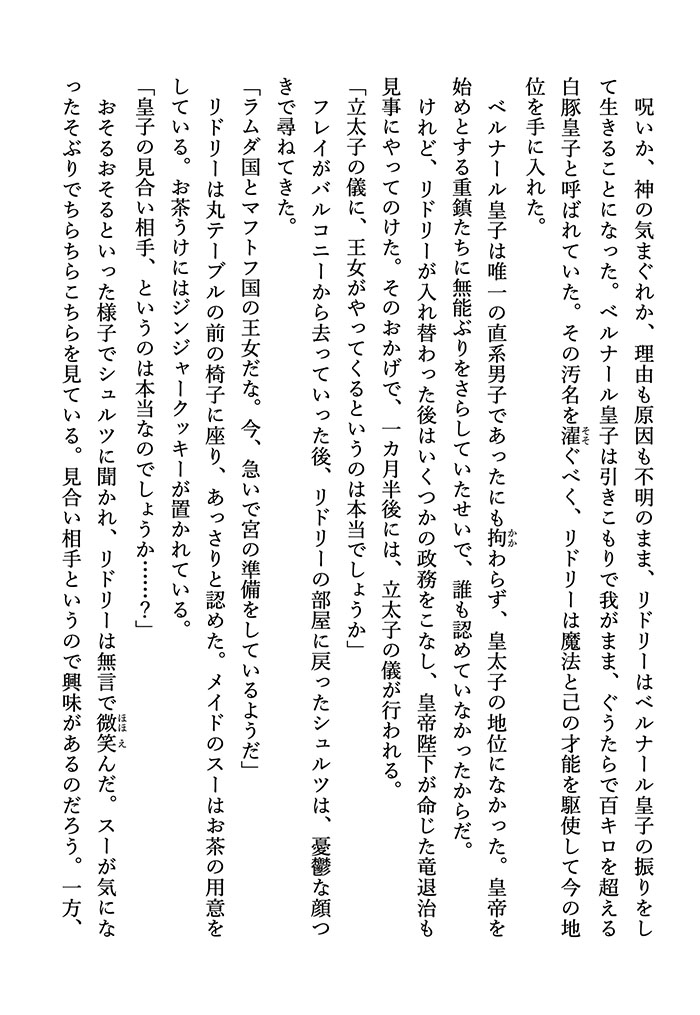 呪いか、神の気まぐれか、理由も原因も不明のまま、リドリーはベルナール皇子の振りをし
て生きることになった。ベルナール皇子は引きこもりで我がまま、ぐうたらで百キロを超える
白豚皇子と呼ばれていた。その汚名を濯そそぐべく、リドリーは魔法と己の才能を駆使して今の地
位を手に入れた。
ベルナール皇子は唯一の直系男子であったにも拘かかわらず、皇太子の地位になかった。皇帝を
始めとする重鎮たちに無能ぶりをさらしていたせいで、誰も認めていなかったからだ。
けれど、リドリーが入れ替わった後はいくつかの政務をこなし、皇帝陛下が命じた竜退治も
見事にやってのけた。そのおかげで、一カ月半後には、立太子の儀が行われる。
「立太子の儀に、王女がやってくるというのは本当でしょうか」
フレイがバルコニーから去っていった後、リドリーの部屋に戻ったシュルツは、憂鬱な顔つ
きで尋ねてきた。
「ラムダ国とマフトフ国の王女だな。今、急いで宮の準備をしているようだ」
リドリーは丸テーブルの前の椅子に座り、あっさりと認めた。メイドのスーはお茶の用意を
している。お茶うけにはジンジャークッキーが置かれている。
「皇子の見合い相手、というのは本当なのでしょうか……？」
おそるおそるといった様子でシュルツに聞かれ、リドリーは無言で微笑ほほえんだ。スーが気にな
ったそぶりでちらちらこちらを見ている。見合い相手というので興味があるのだろう。一方、